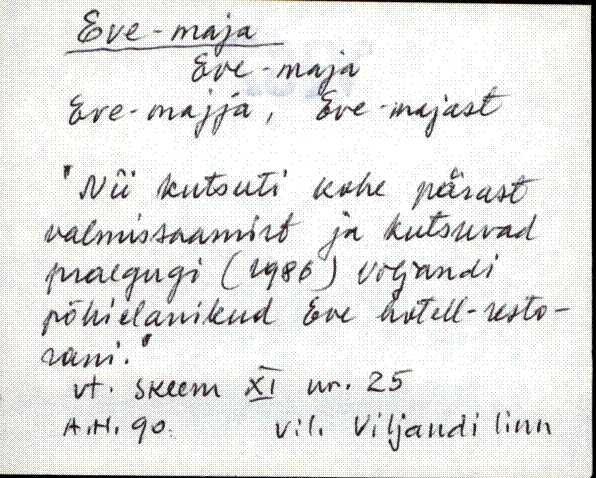 Eve-maja
Eve-maja
Eve-majja, Eve-majast
"Nii kutsuti kohe pärast
valmissaamist ja kutsuvad
praegugi (1986) Viljandi
põhielanikud Eve hotell-resto-
rani."
vt. skeem XI nr. 25
A.H. 90. Vil. Viljandi linn